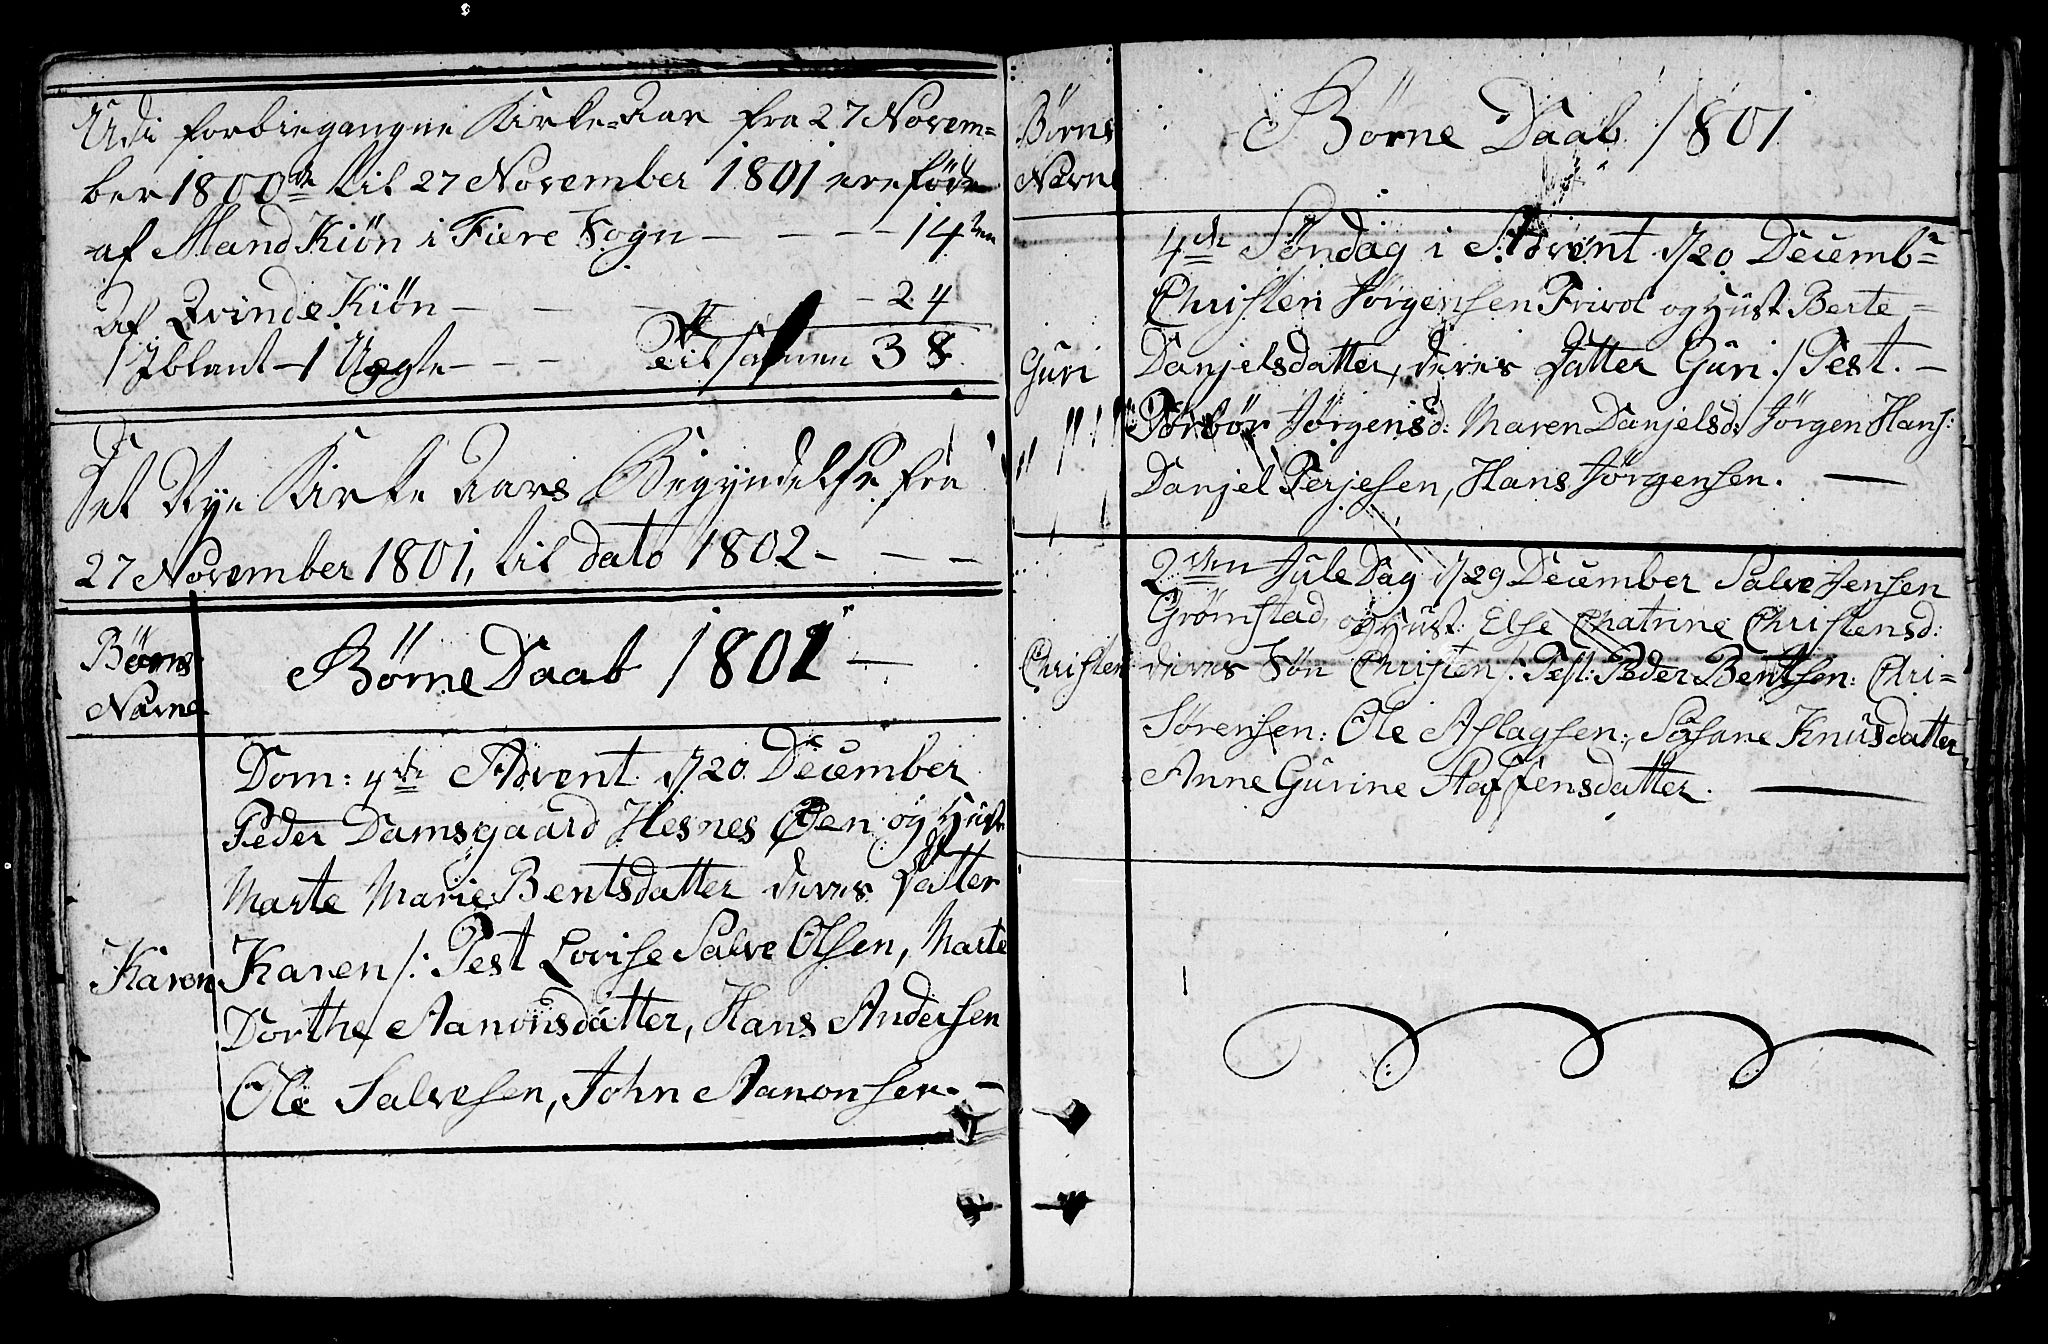 Udi forbiegangne Kirke-Aar fra 27 Novem=
ber 1800de til 27 November 1801 ere föde
af Mand Kiön i Fiere Sogn - - - - 14ten
af Qvinde Kiön - - - - 24
Iblant - 1 Uægte - - - Tilsamen 38
Det Nye Kirke Aars Begyndelse fra
27 November 1801, til dato 1802 - - -
Börns
Navne
Börne Daab 1801 -
Dom: 4de Advent d/20 December
Peder Damsgaard Hesnes Öen og Hust
Marte Marie Bentsdatter deres Datter
Karen
Karen /: Test Lovise Salve Olsen, Marte
Dorthe Aanonsdatter, Hans Andersen
Ole Salvesen, John Aanonsen. -
Börns
Navne
Börne Daab 1801
4de Söndag i Advent d/20 Decembr
Christen Jörgensen Frivol og Hust Berte =
Guri
Danjelsdatter, deres Datter Guri /: Test. -
Torbör Jörgensd: Maren Danjelsd: Jörgen Hans:
Danjel Terjesen, Hans Jörgensen. -
2den Jule Dag d/29 December Salve Jensen
Grömstad, og Hust: Else Chatrine Christensd:
Christen
deres Sön Christen /: Test: Peder Bentsen: Chri=
Sörensen: Ole Aslagsen: Sosane Knusdatter
Anne Gurine Staffensdatter. -